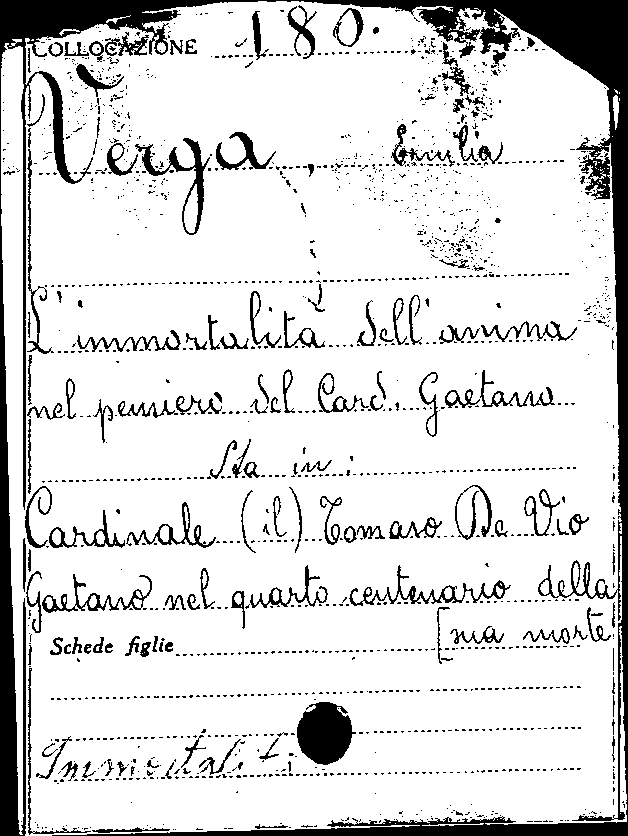 COLLOCAZIONE 180.
Verga, Emilia
L'immortalità dell'anima
nel pensiero del Card. Gaetano
Sta in:
Cardinale (il) Tomaso De Vio
Gaetano nel quarto centenario della
[sua morte
Schede figlie
Immortalità